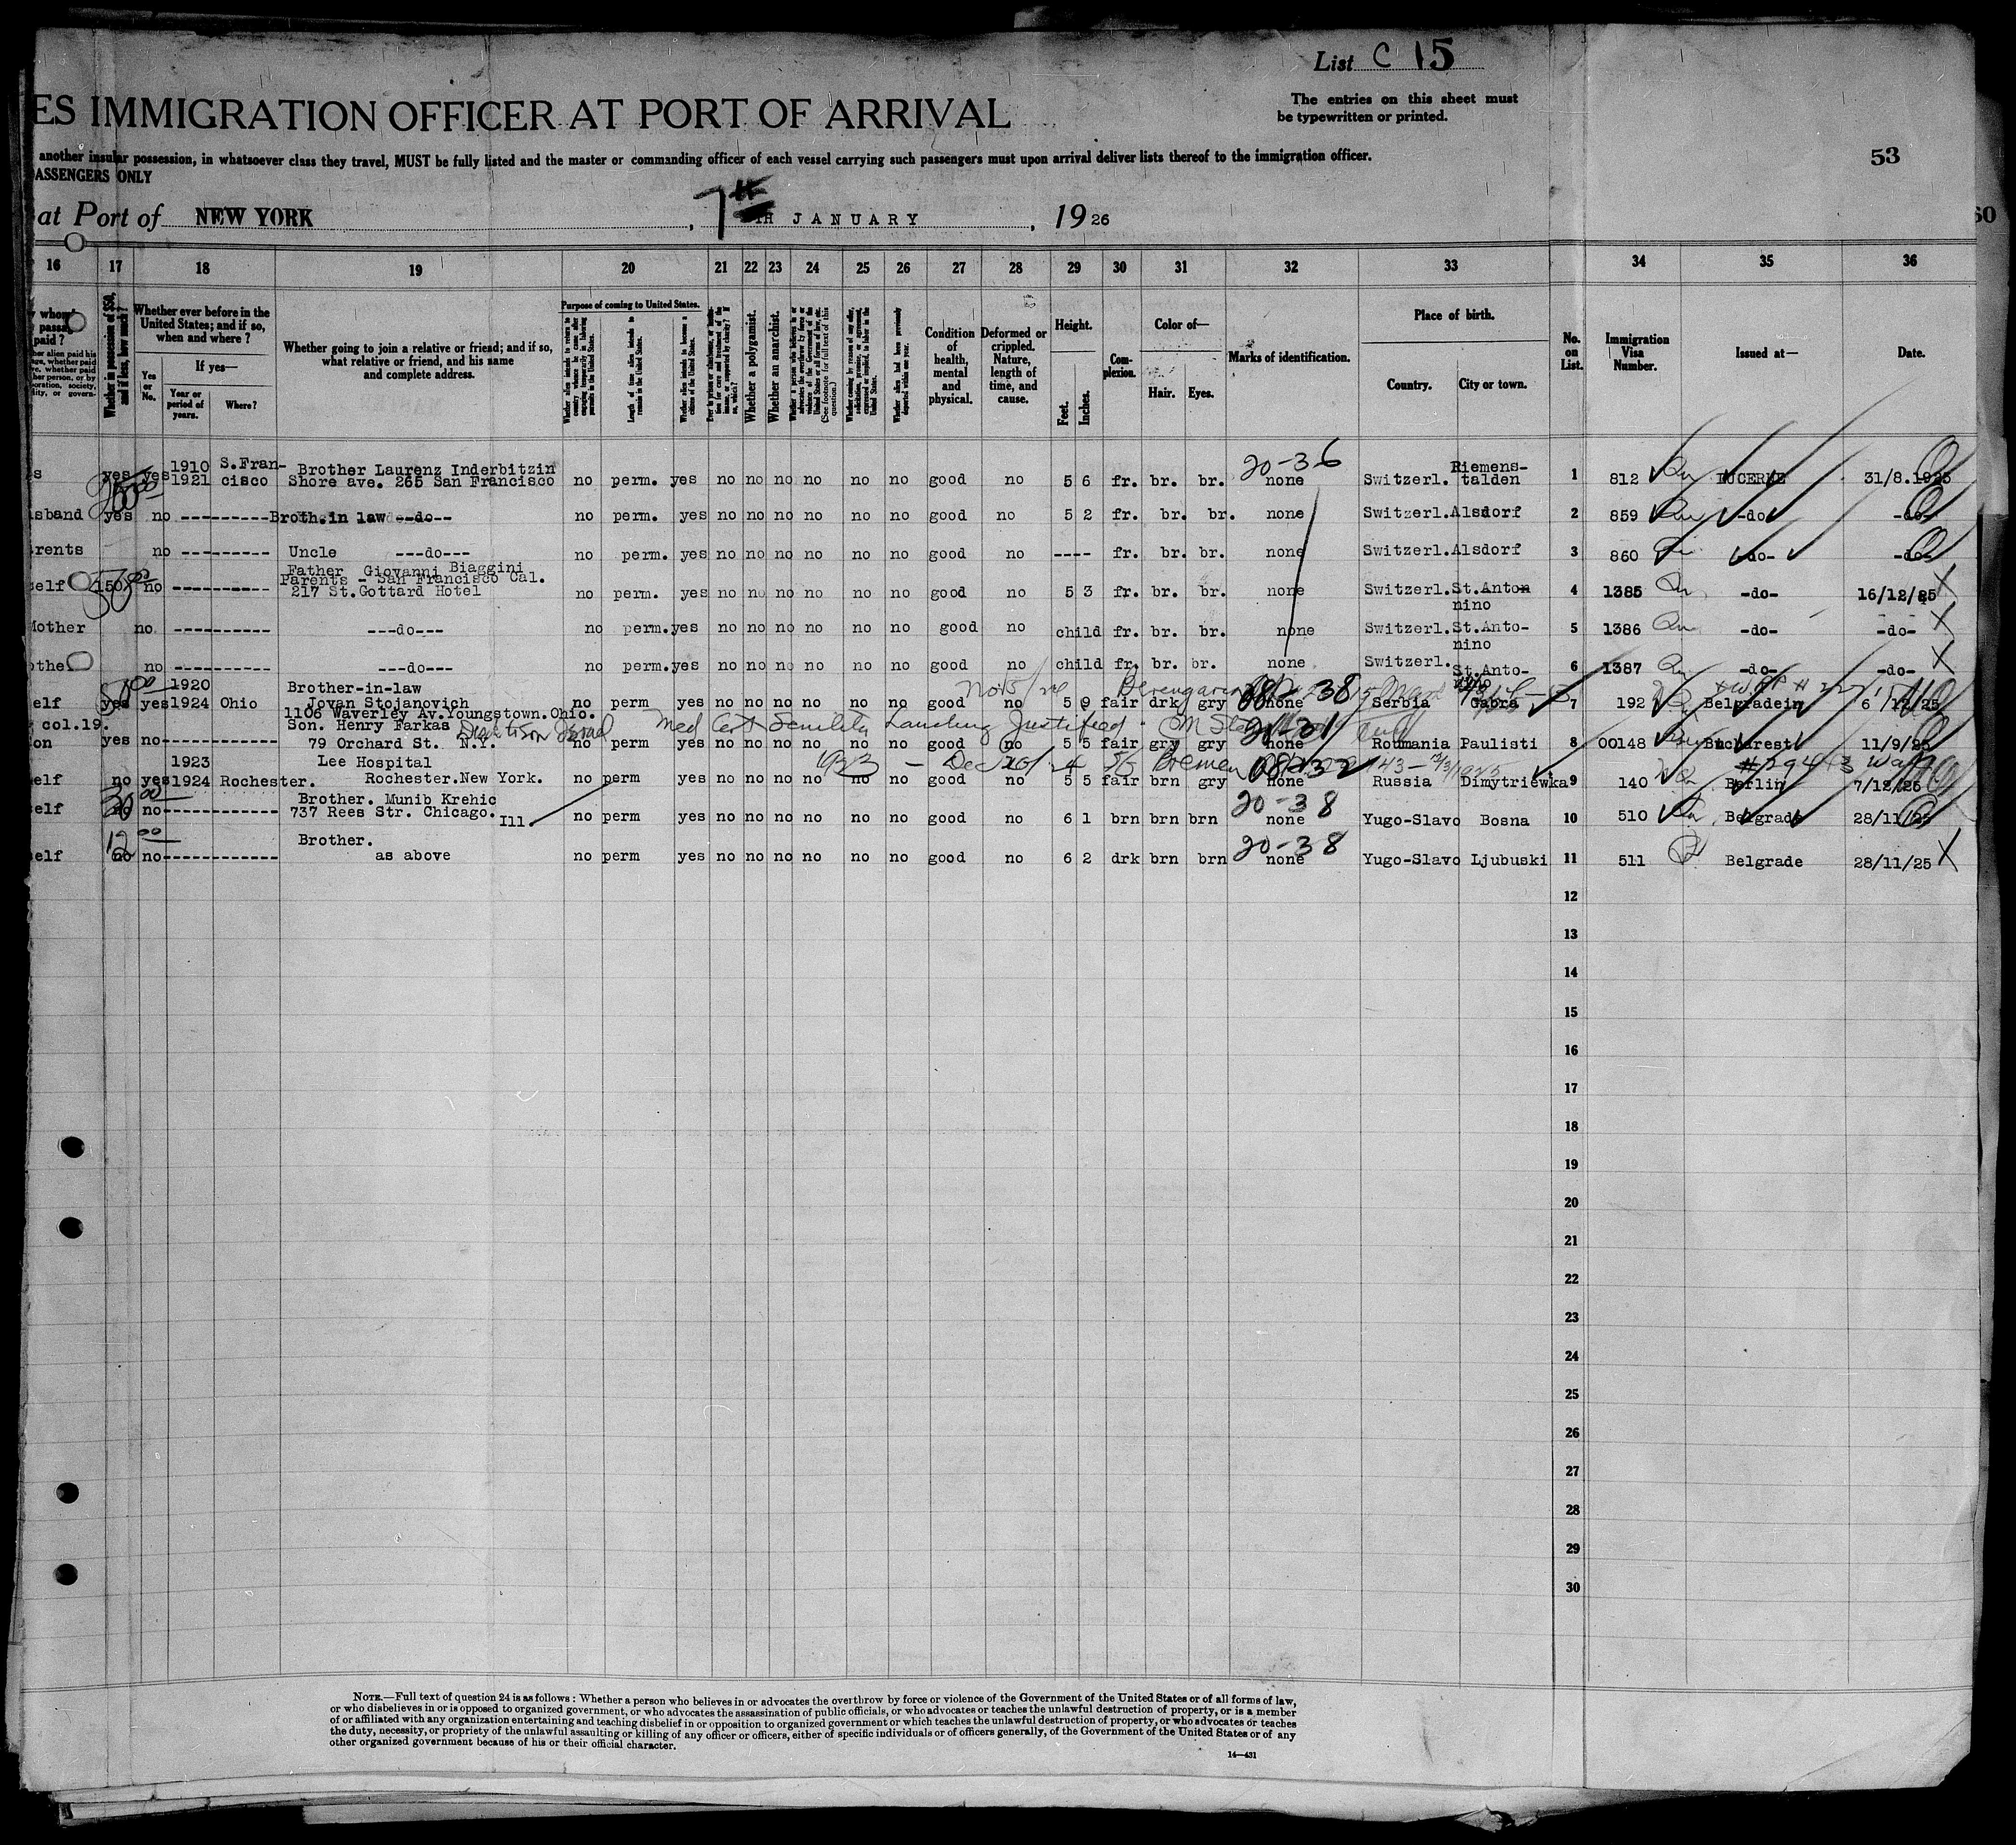 List C 15
The entries on this sheet must
be typewritten or printed.
ES IMMIGRATION OFFICER AT PORT OF ARRIVAL
another insular possession, in whatsoever class they travel, MUST be fully listed and the master or commanding officer of each vessel carrying such passengers must upon arrival deliver lists thereof to the immigration officer.
PASSENGERS ONLY
53
at Port of NEW YORK, 7th TH JANUARY, 1926
60
16 17 18 19 20 21 22 23 24 25 26 27 28 29 30 31 32 33 34 35 36
whom
passage
paid?
Whether in possession of $50, and if less, how much?
Whether ever before in the United States; and if so, when and where?
If yes—
Yes or No.
Year or period of years.
Where?
Whether going to join a relative or friend; and if so, what relative or friend, and his name and complete address.
Purpose of coming to United States.
Length of time alien intends to remain in the United States.
Whether alien intends to become a citizen of the United States.
Whether a polygamist.
Whether an anarchist.
(See footnote for full text of this question.)
Whether alien had been previously deported within one year.
Condition of health, mental and physical.
Deformed or crippled. Nature, length of time, and cause.
Height.
Feet. Inches.
Complexion.
Color of—
Hair. Eyes.
Marks of identification.
Place of birth.
Country. City or town.
No. on List.
Immigration Visa Number.
Issued at—
Date.
yes yes 1910 1921 S.Francisco Brother Laurenz Inderbitzin Shore ave. 265 San Francisco no perm. yes no no no no no no good no 5 6 fr. br. br. 20-36 none Switzerl. Riemenstalden 1 812 LUCERNE 31/8.1925
sband yes no ---------- Broth.in law --do-- no perm. yes no no no no no no good no 5 2 fr. br. br. none Switzerl. Alsdorf 2 859 -do- -do-
rents no ---------- Uncle ---do--- no perm. yes no no no no no no good no ---- fr. br. br. none Switzerl. Alsdorf 3 860 -do- -do-
self 150 no ---------- Father Giovanni Biaggini Parents - San Francisco Cal. 217 St.Gottard Hotel no perm. yes no no no no no no good no 5 3 fr. br. br. none Switzerl. St.Antonino 4 1385 -do- 16/12/25 X
Mother no. ---------- ---do--- no perm. yes no no no no no no good no child fr. br. br. none Switzerl. St.Antonino 5 1386 -do- -do- X
othe no ---------- ---do--- no perm. yes no no no no no no good no child fr. br. br. none Switzerl. St.Antonino 6 1387 -do- -do- X
self 50 00 yes yes 1920 1924 Ohio Brother-in-law Jovan Stojanovich no perm yes no no no no no no good no 5 9 fair drk gry none Serbia Gabra 7 192 Belgrade 6/12/25
col.19. 1106 Waverley Av.Youngstown.Ohio.
on yes no---------- Son. Henry Farkas 79 Orchard St. N.Y. no perm yes no no no no no no good no 5 5 fair gry gry 21-31 none Roumania Paulisti 8 00148 Bucharest 11/9/25
Med Cert Senility Landing Justified
self no yes 1923 1924 Rochester. Lee Hospital Rochester.New York. no perm yes no no no no no no good no 5 5 fair brn gry none Russia Dimytriewka 9 140 Berlin 7/12/25
self 30 00 no no---------- Brother. Munib Krehic 737 Rees Str. Chicago. Ill no perm yes no no no no no no good no 6 1 brn brn brn 20-38 none Yugo-Slavo Bosna 10 510 Belgrade 28/11/25
self 12 00 no no---------- Brother. as above no perm yes no no no no no no good no 6 2 drk brn brn 20-38 none Yugo-Slavo Ljubuski 11 511 Belgrade 28/11/25 X
12
13
14
15
16
17
18
19
20
21
22
23
24
25
26
27
28
29
30
NOTE.—Full text of question 24 is as follows: Whether a person who believes in or advocates the overthrow by force or violence of the Government of the United States or of all forms of law,
or who disbelieves in or is opposed to organized government, or who advocates the assassination of public officials, or who advocates or teaches the unlawful destruction of property, or is a member
of or affiliated with any organization entertaining and teaching disbelief in or opposition to organized government or which teaches the unlawful destruction of property, or who advocates or teaches
the duty, necessity, or propriety of the unlawful assaulting or killing of any officer or officers, either of specific individuals or of officers generally, of the Government of the United States or of any
other organized government because of his or their official character.
14—431